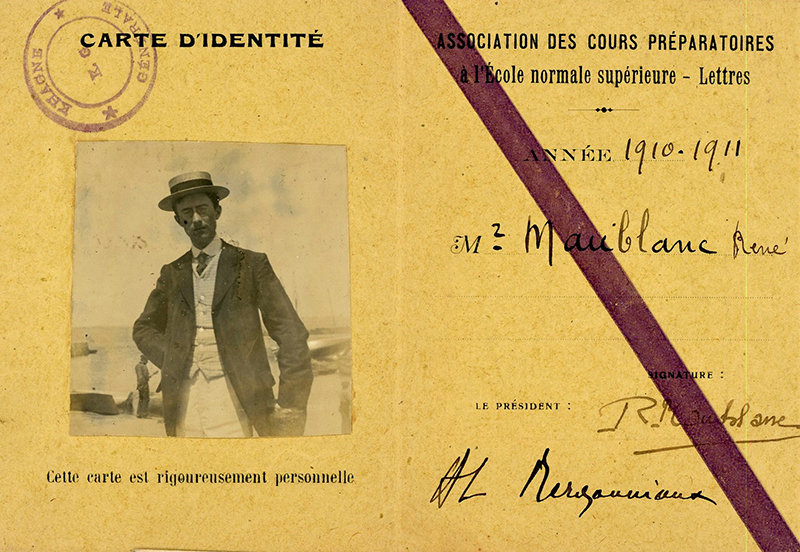 CARTE D'IDENTITÉ
KHAGNE GÉNÉRALE
Cette carte est rigoureusement personnelle
ASSOCIATION DES COURS PRÉPARATOIRES
à l'École normale supérieure - Lettres
ANNÉE 1910-1911
Mr Maublanc René
SIGNATURE :
LE PRÉSIDENT :
R. Maublanc